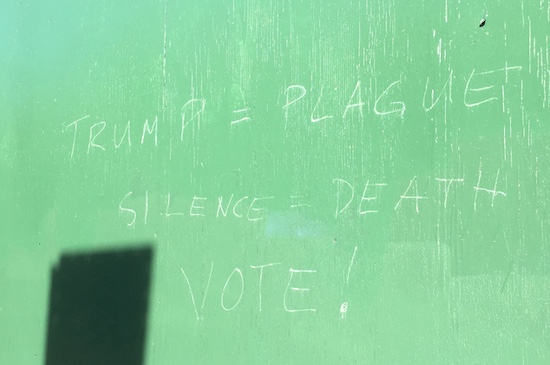 TRUMP = PLAGUE
SILENCE = DEATH
VOTE!